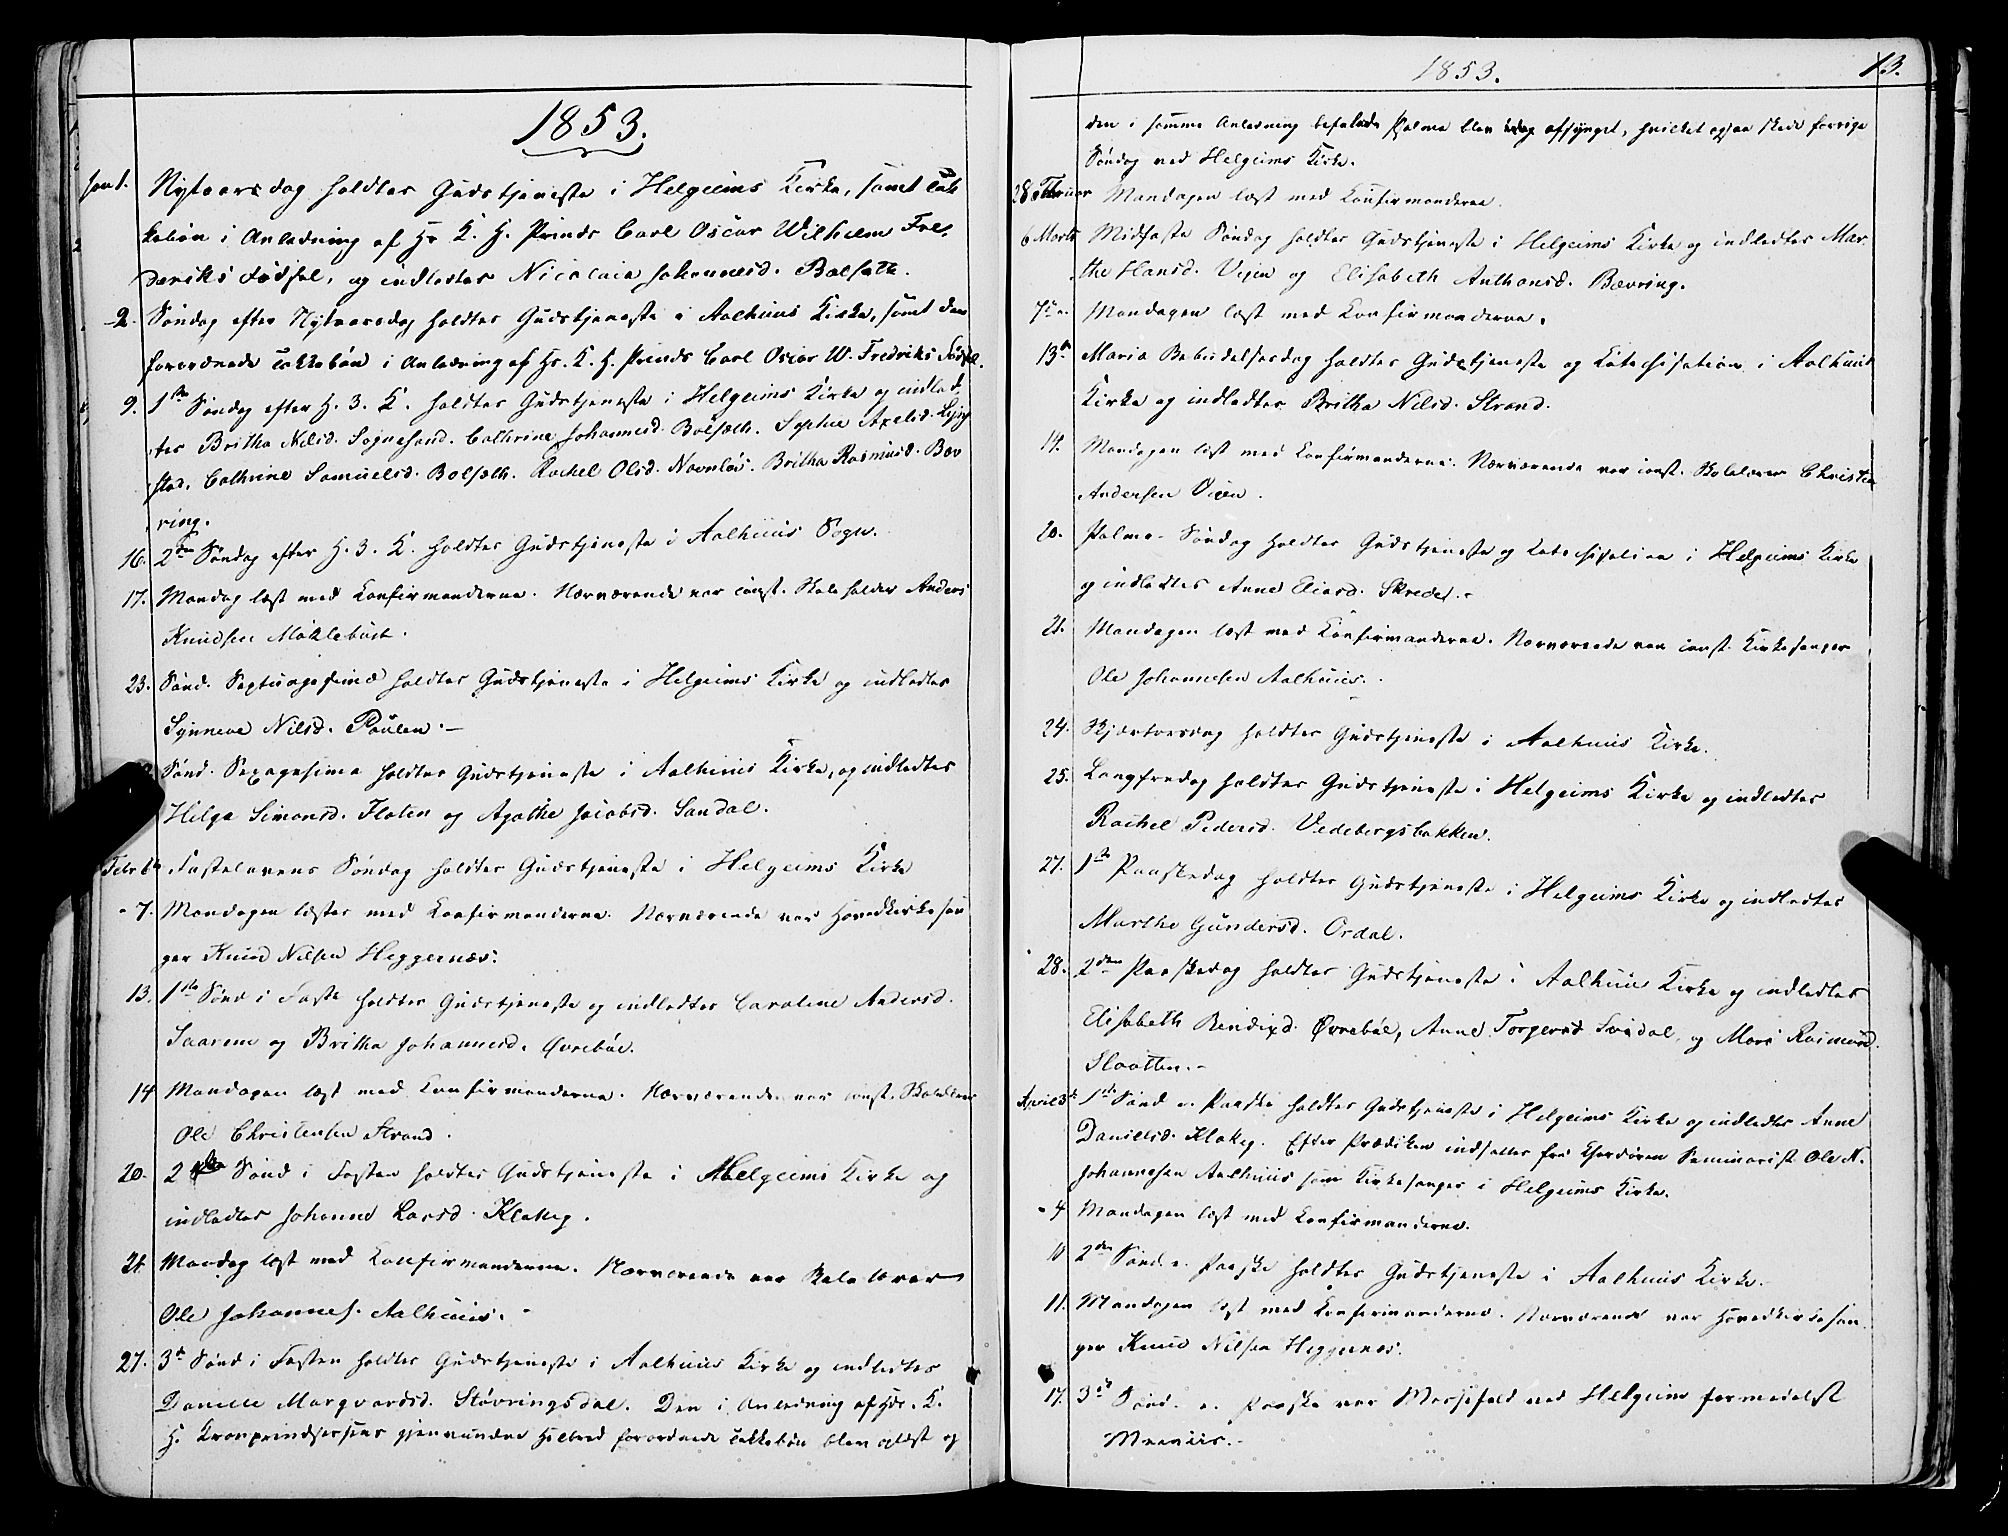 1853.
Nytaarsdag holdtes Gudstjeneste i Helgeims Kirke, samt Tak
kebøn i Anledning af Hs K. H. Prinds Carl Oscar Wilhelm Fre
deriks Fødsel, og indledtes Nicolaia Johannesd. Bolseth.
2. Søndag efter Nytaarsdag holdtes Gudstjeneste i Aalhuus Kirke, samt den
forordnede Takkebøn i Anledning af Hs. K. H. Prinds Carl Oscar W. Fredriks Fødsel.
9. 1ste Søndag efter H. 3. K. holdtes Gudstjeneste i Helgeims Kirke og indled
tes Britha Nilsd. Sognesand. Cathrine Johannesd. Bolseth. Sophie Axelsd.
stad. Cathrine Samuelsd. Bolseth. Rachel Olsd. Navnløs. Britha Rasmusd. Bæv
ring.
16. 2den Søndag efter H. 3. K. holdtes Gudstjeneste i Aalhuus Sogn.
17. Mandag læst med Konfirmanderne. Nærværende var const. Skoleholder Anders
Knudsen Møklebust.
23. Sønd. Septuagesima holdtes Gudstjeneste i Helgeims Kirke og indledtes
Synneve Nilsd. Paulen. —
Sønd. Sexagesima holdtes Gudstjeneste i Aalhuus Kirke, og indledtes
Helga Simonsd. Floten og Agathe Jacobsd. Sandal.
Febr 6te Fastelavens Søndag holdtes Gudstjeneste i Helgeims Kirke
- 7. Mandagen læstes med Konfirmanderne. Nærværende var Hovedkirkesan
ger Knud Nilsen Heggernæs.
13. 1ste Sønd i Faste holdtes Gudstjeneste og indledtes Caroline Andersd.
og Britha Johannesd. Øvrebøe.
14 Mandagen læst med Konfirmanderne. Nærværende var const. Skolelærer
Ole Christensen Strand.
20. 2den Sønd i Fasten holdtes Gudstjeneste i Helgeims Kirke og
indledtes Johanne Larsd. Klakeg.
21. Mandag læst med Konfirmanderne. Nærværende var Skolelærer
Ole Johannes. Aalhuus. -
27. 3die Sønd i Fasten holdtes Gudstjeneste i Aalhuus Kirke og indledtes
Danielle Marqvardsd. Støvringsdal. Den i Anledning af Hds. K.
H. Kronprindsessens gjenvundne Helbred forordnede Takkebøn blev oplæst og
1853. 13.
den i samme Anledning befalede Psalme blev idag afsynget, hvilket ogsaa skede forrige
Søndag ved Helgeims Kirke.
28 Februar Mandagen læst med Konfirmanderne.
6 Marts Midfaste Søndag holdtes Gudstjeneste i Helgeims Kirke og indledtes Mar
the Hansd. Vigen og Elisabeth Anthonsd. Bævring.
7de Mandagen læst med Konfirmanderne.
13de Maria Bebudelsesdag holdtes Gudstjeneste og Katechisation i Aalhuus
Kirke og indledtes Britha Nilsd. Strand.
14. Mandagen læst med Konfirmanderne. Nærværende var const. Skolelærer Christen
Andersen
20. Palme-Søndag holdtes Gudstjeneste og Katechisation i Helgeims Kirke
og indledtes Anne Eliasd. Skredet. -
21. Mandagen læst med Konfirmanderne. Nærværende var const. Kirkesanger
Ole Johannesen Aalhuus.
24. Skjærtorsdag holdtes Gudstjeneste i Aalhuus Kirke.
25. Langfredag holdtes Gudstjeneste i Helgeims Kirke og indledtes
Rachel Pedersd. Vedebergsbakken.
27. 1ste Paaskedag holdtes Gudstjeneste i Helgeims Kirke og indledtes
Marthe Gundersd. Ordal.
28. 2den Paaskedag holdtes Gudstjeneste i Aalhuus Kirke og indledtes
Elisabeth Bendixd. Øvrebøe, Anne Torgersd Sandal, og Mari Rasmusd.
Slaatten. -
April 3die 1ste Sønd e. Paaske holdtes Gudstjeneste i Helgeims Kirke og indledtes Anne
Danielsd. Klakeg. Efter Prædiken indsattes fra Chordøren Seminarist Ole A.
Johannesen Aalhuus som Kirkesanger i Helgeims Kirke.
- 4 Mandagen læst med Konfirmanderne.
10 2den Sønd. e. Paaske holdtes Gudstjeneste i Aalhuus Kirke.
11. Mandagen læst med Konfirmanderne. Nærværende var Hovedkirkesan
ger Knud Nilsen Heggernes.
17. 3die Sønd. e. Paaske var Messefald ved Helgeim formedelst